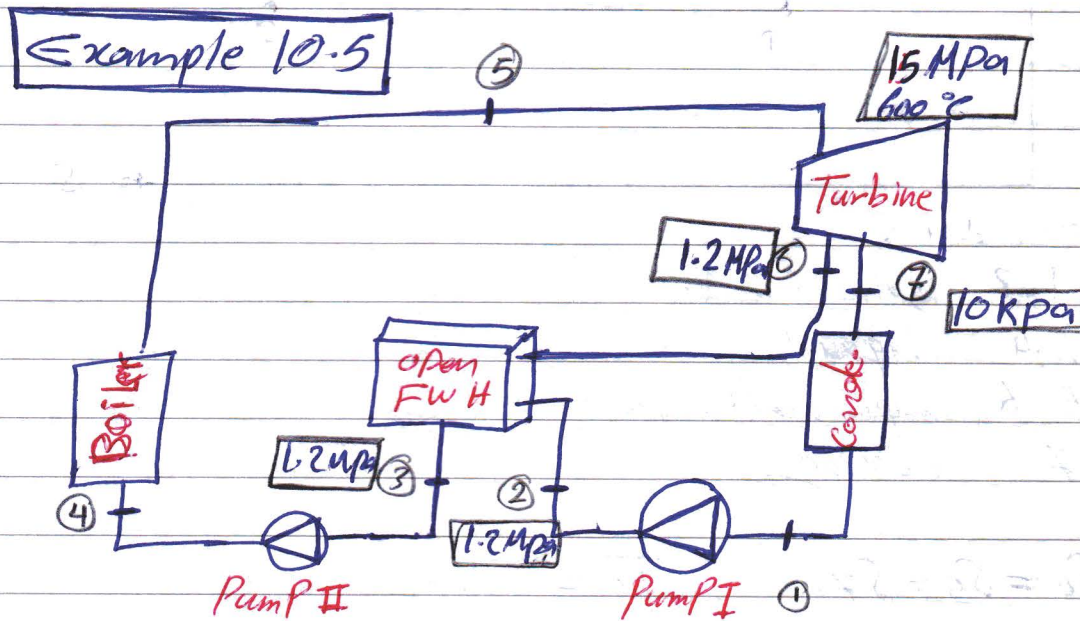 Example 10.5
5
15 MPa
600 °C
Turbine
1.2 MPa
6
7
10 kpa
open
FWH
Conde.
Boiler
1.2 Mpa
3
2
4
1.2 Mpa
Pump II
Pump I
1